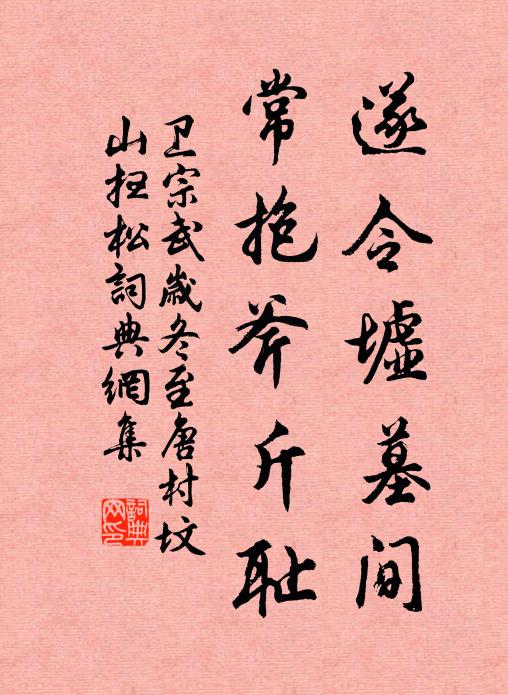 遂令墟墓间
常抱斧斤耻
卫宗武歲冬至唐村坟
山扫松詞典網集
詞典网印